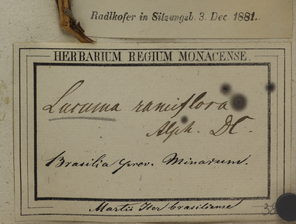 Radlkofer in Sitzungsb. 3. Dec 1881.
HERBARIUM REGIUM MONACENSE.
Lucuma ramiflora
Alph. DC.
Brasilia prov. Minarum.
Martii Iter brasiliense